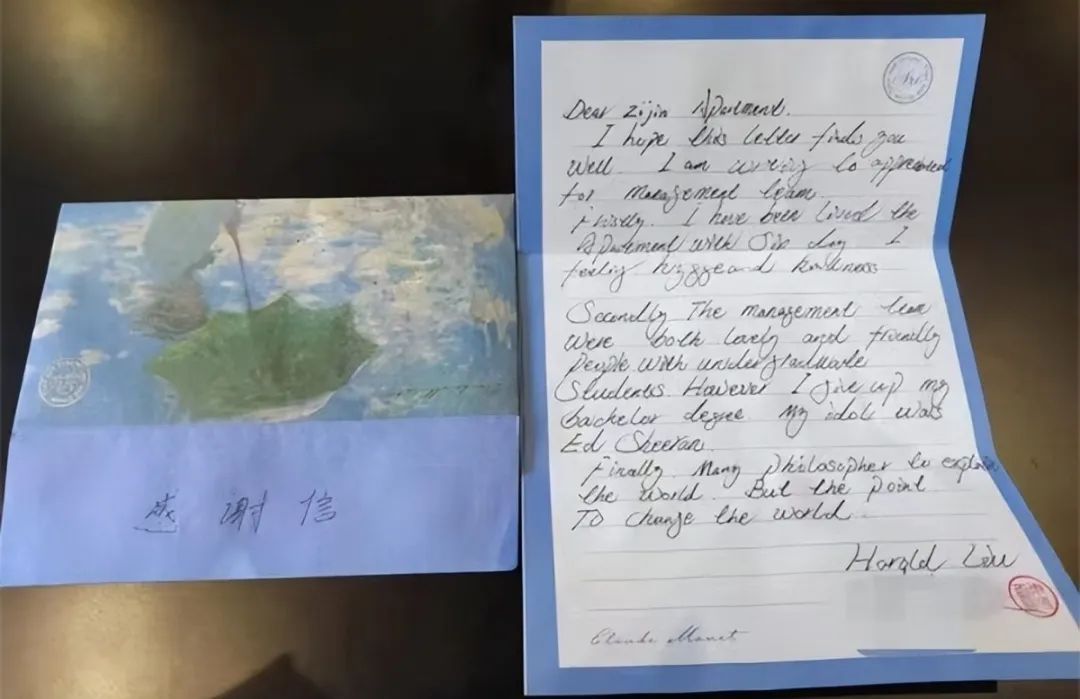 感谢信
Dear Zijin Apartment.
I hope this letter finds you
well. I am writing to
for management team.
Firstly. I have been lived the
Apartment with Six day I
feeling hygge and kindness
Secondly The management team
were both lovely and friendly
people with undergraduate
Students. However I give up my
bachelor degree My idol was
Ed Sheeran.
Finally Many philosopher to explain
the world. But the point
To change the world.
Harold Liu
Claude Monet